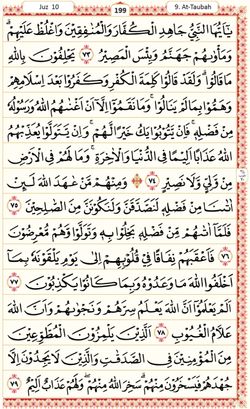 Juz 10
199
9. At-Taubah
يَٰٓأَيُّهَا ٱلنَّبِىُّ جَٰهِدِ ٱلْكُفَّارَ وَٱلْمُنَٰفِقِينَ وَٱغْلُظْ عَلَيْهِمْ ۚ
وَمَأْوَىٰهُمْ جَهَنَّمُ ۖ وَبِئْسَ ٱلْمَصِيرُ ٧٣ يَحْلِفُونَ بِٱللَّهِ
مَا قَالُوا۟ وَلَقَدْ قَالُوا۟ كَلِمَةَ ٱلْكُفْرِ وَكَفَرُوا۟ بَعْدَ إِسْلَٰمِهِمْ
وَهَمُّوا۟ بِمَا لَمْ يَنَالُوا۟ ۚ وَمَا نَقَمُوٓا۟ إِلَّآ أَنْ أَغْنَىٰهُمُ ٱللَّهُ وَرَسُولُهُۥ
مِن فَضْلِهِۦ ۚ فَإِن يَتُوبُوا۟ يَكُ خَيْرًا لَّهُمْ ۖ وَإِن يَتَوَلَّوْا۟ يُعَذِّبْهُمُ
ٱللَّهُ عَذَابًا أَلِيمًا فِى ٱلدُّنْيَا وَٱلْءَاخِرَةِ ۚ وَمَا لَهُمْ فِى ٱلْأَرْضِ
مِن وَلِىٍّ وَلَا نَصِيرٍ ٧٤ وَمِنْهُم مَّنْ عَٰهَدَ ٱللَّهَ لَئِنْ
ءَاتَىٰنَا مِن فَضْلِهِۦ لَنَصَّدَّقَنَّ وَلَنَكُونَنَّ مِنَ ٱلصَّٰلِحِينَ ٧٥
فَلَمَّآ ءَاتَىٰهُم مِّن فَضْلِهِۦ بَخِلُوا۟ بِهِۦ وَتَوَلَّوا۟ وَّهُم مُّعْرِضُونَ
٧٦ فَأَعْقَبَهُمْ نِفَاقًا فِى قُلُوبِهِمْ إِلَىٰ يَوْمِ يَلْقَوْنَهُۥ بِمَآ
أَخْلَفُوا۟ ٱللَّهَ مَا وَعَدُوهُ وَبِمَا كَانُوا۟ يَكْذِبُونَ ٧٧
أَلَمْ يَعْلَمُوٓا۟ أَنَّ ٱللَّهَ يَعْلَمُ سِرَّهُمْ وَنَجْوَىٰهُمْ وَأَنَّ ٱللَّهَ
عَلَّٰمُ ٱلْغُيُوبِ ٧٨ ٱلَّذِينَ يَلْمِزُونَ ٱلْمُطَّوِّعِينَ
مِنَ ٱلْمُؤْمِنِينَ فِى ٱلصَّدَقَٰتِ وَٱلَّذِينَ لَا يَجِدُونَ إِلَّا
جُهْدَهُمْ فَيَسْخَرُونَ مِنْهُمْ ۙ سَخِرَ ٱللَّهُ مِنْهُمْ وَلَهُمْ عَذَابٌ أَلِيمٌ ٧٩